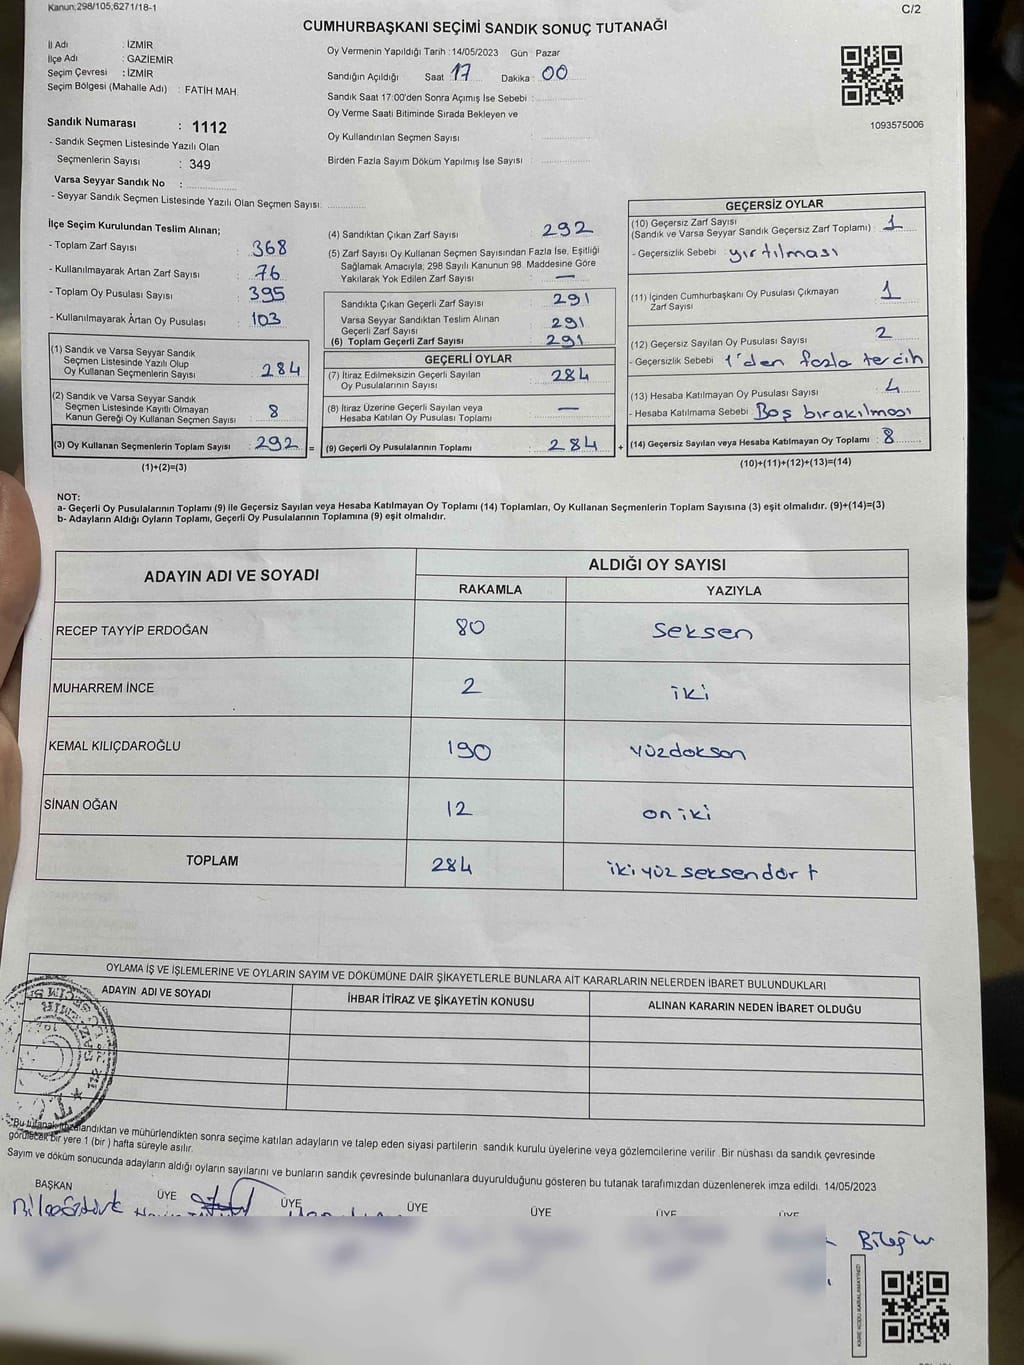 Kanun:298/105,6271/18-1
C/2
CUMHURBAŞKANI SEÇİMİ SANDIK SONUÇ TUTANAĞI
İl Adı : İZMİR
İlçe Adı : GAZİEMİR
Seçim Çevresi : İZMİR
Seçim Bölgesi (Mahalle Adı) : FATİH MAH.
Oy Vermenin Yapıldığı Tarih : 14/05/2023 Gün : Pazar
Sandığın Açıldığı Saat : 17 Dakika : 00
Sandık Saat 17:00'den Sonra Açımış İse Sebebi :
Oy Verme Saati Bitiminde Sırada Bekleyen ve
Oy Kullandırılan Seçmen Sayısı :
Birden Fazla Sayım Döküm Yapılmış İse Sayısı :
1093575006
Sandık Numarası : 1112
- Sandık Seçmen Listesinde Yazılı Olan
Seçmenlerin Sayısı : 349
Varsa Seyyar Sandık No :
- Seyyar Sandık Seçmen Listesinde Yazılı Olan Seçmen Sayısı:
İlçe Seçim Kurulundan Teslim Alınan;
- Toplam Zarf Sayısı : 368
- Kullanılmayarak Artan Zarf Sayısı : 76
- Toplam Oy Pusulası Sayısı : 395
- Kullanılmayarak Artan Oy Pusulası : 103
(1) Sandık ve Varsa Seyyar Sandık
Seçmen Listesinde Yazılı Olup
Oy Kullanan Seçmenlerin Sayısı : 284
(2) Sandık ve Varsa Seyyar Sandık
Seçmen Listesinde Kayıtlı Olmayan
Kanun Gereği Oy Kullanan Seçmen Sayısı : 8
(3) Oy Kullanan Seçmenlerin Toplam Sayısı : 292 =
(1)+(2)=(3)
(4) Sandıktan Çıkan Zarf Sayısı : 292
(5) Zarf Sayısı Oy Kullanan Seçmen Sayısından Fazla İse, Eşitliği
Sağlamak Amacıyla, 298 Sayılı Kanunun 98. Maddesine Göre
Yakılarak Yok Edilen Zarf Sayısı : —
Sandıkta Çıkan Geçerli Zarf Sayısı : 291
Varsa Seyyar Sandıktan Teslim Alınan
Geçerli Zarf Sayısı : 291
(6) Toplam Geçerli Zarf Sayısı : 291
GEÇERLİ OYLAR
(7) İtiraz Edilmeksizin Geçerli Sayılan
Oy Pusulalarının Sayısı : 284
(8) İtiraz Üzerine Geçerli Sayılan veya
Hesaba Katılan Oy Pusulası Toplamı : —
(9) Geçerli Oy Pusulalarının Toplamı : 284 +
GEÇERSİZ OYLAR
(10) Geçersiz Zarf Sayısı
(Sandık ve Varsa Seyyar Sandık Geçersiz Zarf Toplamı) : 1
- Geçersizlik Sebebi : yırtılması
(11) İçinden Cumhurbaşkanı Oy Pusulası Çıkmayan
Zarf Sayısı : 1
(12) Geçersiz Sayılan Oy Pusulası Sayısı : 2
- Geçersizlik Sebebi : 1'den fazla tercih
(13) Hesaba Katılmayan Oy Pusulası Sayısı : 4
- Hesaba Katılmama Sebebi : Boş bırakılması
(14) Geçersiz Sayılan veya Hesaba Katılmayan Oy Toplamı : 8
(10)+(11)+(12)+(13)=(14)
NOT:
a- Geçerli Oy Pusulalarının Toplamı (9) ile Geçersiz Sayılan veya Hesaba Katılmayan Oy Toplamı (14) Toplamları, Oy Kullanan Seçmenlerin Toplam Sayısına (3) eşit olmalıdır. (9)+(14)=(3)
b- Adayların Aldığı Oyların Toplamı, Geçerli Oy Pusulalarının Toplamına (9) eşit olmalıdır.
ADAYIN ADI VE SOYADI
ALDIĞI OY SAYISI
RAKAMLA YAZIYLA
RECEP TAYYİP ERDOĞAN 80 Seksen
MUHARREM İNCE 2 iki
KEMAL KILIÇDAROĞLU 190 yüzdoksan
SİNAN OĞAN 12 on iki
TOPLAM 284 iki yüz seksendört
OYLAMA İŞ VE İŞLEMLERİNE VE OYLARIN SAYIM VE DÖKÜMÜNE DAİR ŞİKAYETLERLE BUNLARA AİT KARARLARIN NELERDEN İBARET BULUNDUKLARI
ADAYIN ADI VE SOYADI İHBAR İTİRAZ VE ŞİKAYETİN KONUSU ALINAN KARARIN NEDEN İBARET OLDUĞU
T.C.
"Bu tutanak imzalandıktan ve mühürlendikten sonra seçime katılan adayların ve talep eden siyasi partilerin sandık kurulu üyelerine veya gözlemcilerine verilir. Bir nüshası da sandık çevresinde
görülecek bir yere 1 (bir ) hafta süreyle asılır.
Sayım ve döküm sonucunda adayların aldığı oyların sayılarını ve bunların sandık çevresinde bulunanlara duyurulduğunu gösteren bu tutanak tarafımızdan düzenlenerek imza edildi. 14/05/2023
BAŞKAN ÜYE ÜYE ÜYE ÜYE ÜYE ÜYE
KARE KODU KARALAMAYINIZ!